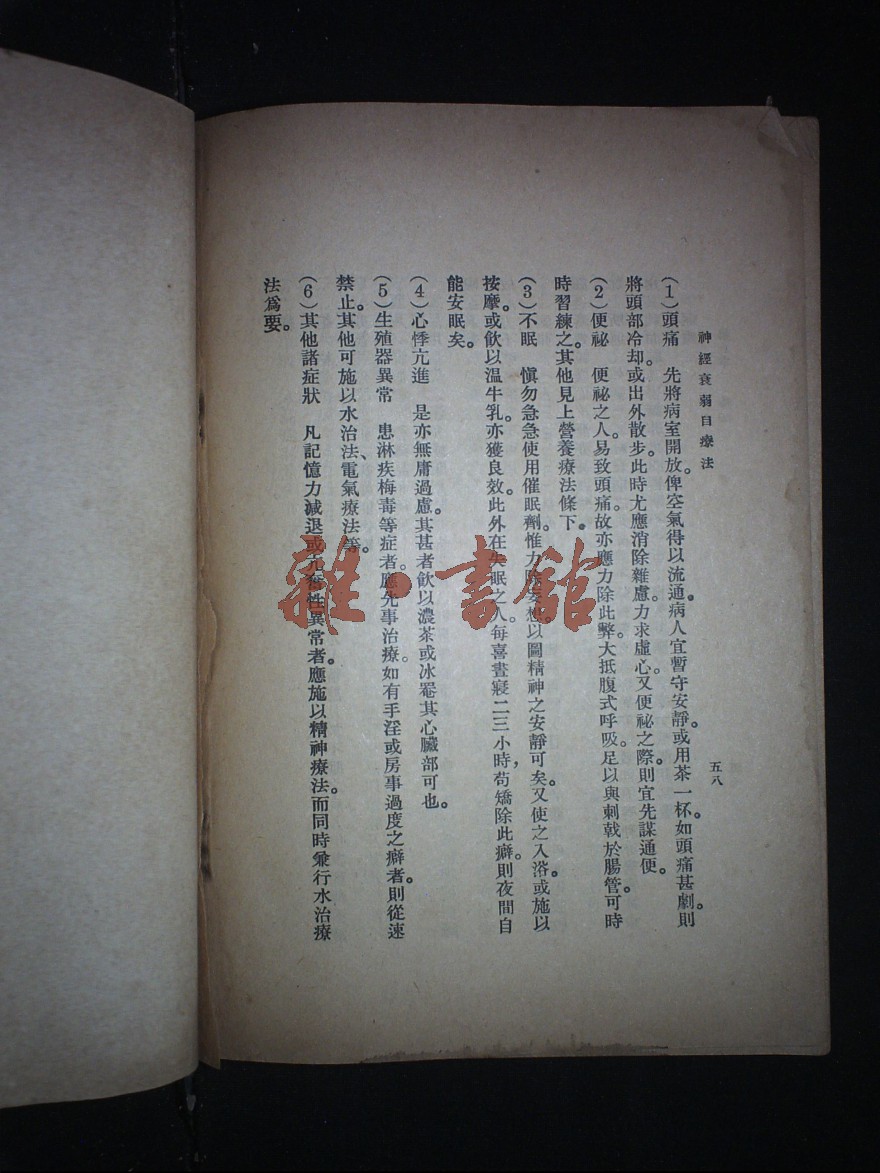 神經衰弱自療法
五八
(1)頭痛　先將病室開放。俾空氣得以流通。病人宜暫守安靜。或用茶一杯。如頭痛甚劇。則
將頭部冷却。或出外散步。此時尤應消除雜慮。力求虛心。又便祕之際。則宜先謀通便。
(2)便祕　便祕之人。易致頭痛。故亦應力除此弊。大抵腹式呼吸。足以與刺戟於腸管。可時
時習練之。其他見上營養療法條下。
(3)不眠　愼勿急急使用催眠劑。惟力除妄想。以圖精神之安靜可矣。又使之入浴。或施以
按摩。或飲以溫牛乳。亦獲良效。此外在失眠之人。每喜晝寢二三小時，苟矯除此癖。則夜間自
能安眠矣。
(4)心悸亢進　是亦無庸過慮。其甚者飲以濃茶或冰罨其心臟部可也。
(5)生殖器異常　患淋疾梅毒等症者。應先事治療。如有手淫或房事過度之癖者。則從速
禁止。其他可施以水治法、電氣療法等。
(6)其他諸症狀　凡記憶力減退或亢奮性異常者。應施以精神療法。而同時兼行水治療
法爲要。
雜·書館